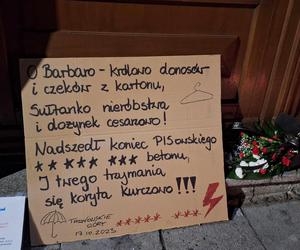 O Barbaro - królowo donosów
i czeków z kartonu,
Sułtanko nieróbstwa
i dożynek cesarzowo!
Nadszedł koniec PISowskiego
** ***** *** betonu,
I twego trzymania
się koryta kurczowo!!!
TARNOWSKIE
GÓRY
17.10.2023
***** ***